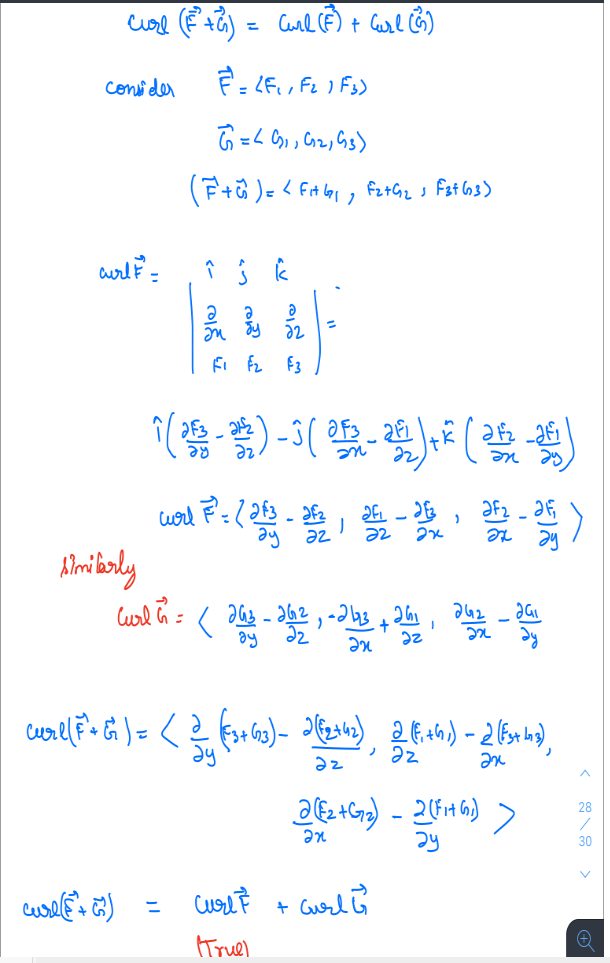 curl (F⃗ + G⃗) = Curl (F⃗) + Curl (G⃗)
consider F⃗ = <F₁, F₂, F₃>
G⃗ = <G₁, G₂, G₃>
(F⃗ + G⃗) = <F₁+G₁, F₂+G₂, F₃+G₃>
curl F⃗ = | î ĵ k̂ |
| ∂/∂x ∂/∂y ∂/∂z | =
| F₁ F₂ F₃ |
î (∂F₃/∂y - ∂F₂/∂z) - ĵ (∂F₃/∂x - ∂F₁/∂z) + k̂ (∂F₂/∂x - ∂F₁/∂y)
curl F⃗ = <∂F₃/∂y - ∂F₂/∂z, ∂F₁/∂z - ∂F₃/∂x, ∂F₂/∂x - ∂F₁/∂y>
Similarly
Curl G⃗ = <∂G₃/∂y - ∂G₂/∂z, -∂G₃/∂x + ∂G₁/∂z, ∂G₂/∂x - ∂G₁/∂y
curl(F⃗ + G⃗) = <∂/∂y (F₃+G₃) - ∂(F₂+G₂)/∂z, ∂/∂z (F₁+G₁) - ∂(F₃+G₃)/∂x,
∂(F₂+G₂)/∂x - ∂(F₁+G₁)/∂y>
28
/
30
curl(F⃗ + G⃗) = curl F⃗ + curl G⃗
(True)